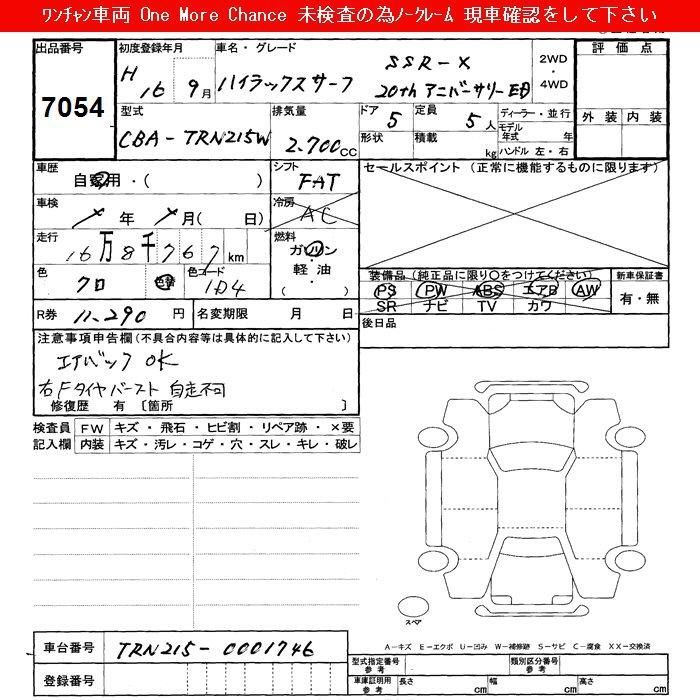 ﾜﾝﾁｬﾝ車両 One More Chance 未検査の為ﾉｰｸﾚｰﾑ 現車確認をして下さい
出品番号 7054
初度登録年月 H 16 9月
車名・グレード ハイラックスサーフ SSR-X
20th アニバーサリーED
2WD ・ 4WD
評価点
外装 内装
型式 CBA-TRN215W
排気量 2.700cc
ドア 5
定員 5人
形状 積載 kg
ディーラー・並行
モデル年式 年
ハンドル 左・右
車歴 自家用・( )
シフト FAT
セールスポイント (正常に機能するものに限ります)
車検 年 月( 日)
冷房 AC
走行 16万8千767km
燃料 ガソリン
軽油
・( )
色 クロ 色替
色コード 1D4
装備品 (純正品に限り○をつけてください)
PS PW ABS エアB AW
SR ナビ TV カワ
新車保証書
有・無
R券 11.290円
名変期限 月 日
後日品
注意事項申告欄(不具合内容等は具体的に記入して下さい)
エアバック OK
右Fタイヤバースト 自走不可
修復歴 有 〔箇所 〕
検査員記入欄
FW キズ・飛石・ヒビ割・リペア跡・×要
内装 キズ・汚レ・コゲ・穴・スレ・キレ・破レ
スペア
A-キズ E-エクボ U-凹み W-補修跡 S-サビ C-腐食 XX-交換済
車台番号 TRN215-0001746
登録番号
型式指定番号 参考
類別区分番号 参考
車庫証明用 参考 長さ cm 幅 cm 高さ cm